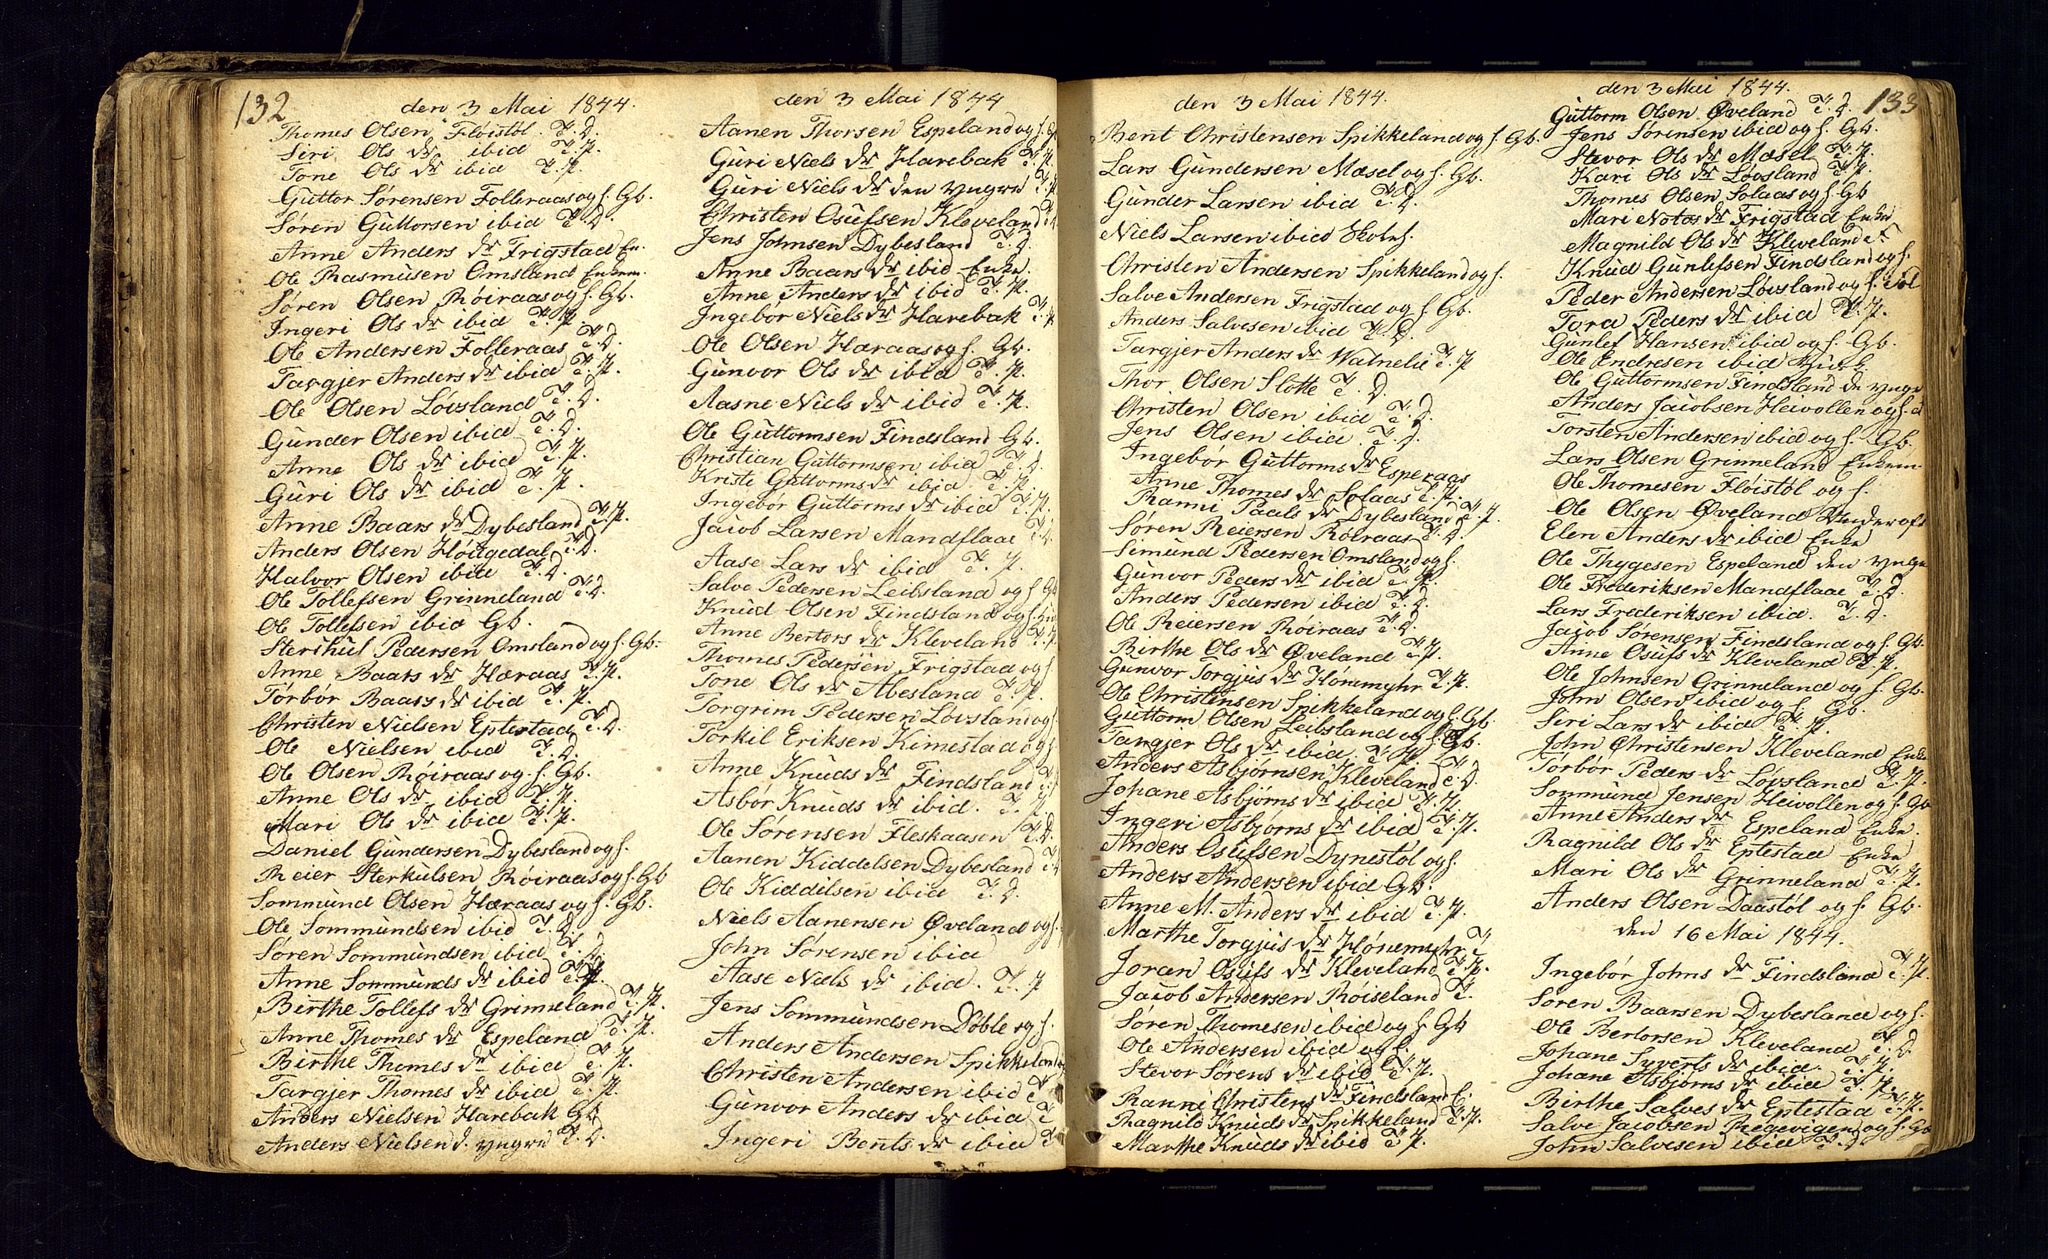 132
den 3 Mai 1844.
Thomes Olsen Fløistøl. T. D.
Siri Ols dr ibid T. P.
Tone Ols dr ibid T. P.
Guttor Sørensen Folleraas og f. Gb.
Søren Guttorsen ibid T. D.
Anne Anders dr Frigstad En.
Ole Rasmusen Omsland Enkem.
Søren Olsen Røiraas og f. Gb.
Ingeri Ols dr ibid T. P.
Ole Andersen Folleraas T. D.
Targjer Anders dr ibid T. P.
Ole Olsen Løvsland T. D.
Gunder Olsen ibid T. D.
Anne Ols dr ibid T. P.
Guri Ols dr ibid T. P.
Anne Baars dr Dybesland T. P.
Anders Olsen Høugedal T. D.
Halvor Olsen ibid T. D.
Ole Tollefsen Grinneland T. D.
Ole Tollefsen ibid Gb.
Sterkul Pedersen Omsland og f. Gb.
Anne Baars dr Høraas T. P.
Torbor Baars dr ibid T. P.
Christen Nielsen Eptestad T. D.
Ole Nielsen ibid T. D.
Ole Olsen Røiraas og f. Gb.
Anne Ols dr ibid T. P.
Mari Ols dr ibid T. P.
Daniel Gundersen Dybesland og f.
Reier Sterkulsen Røiraas og f. Gb
Sommund Olsen Høraas og f. Gb.
Ole Sommundsen ibid T. D.
Søren Sommundsen ibid T. D.
Anne Sommunds dr ibid T. P.
Birthe Tollefs dr Grinneland T. P.
Anne Thomes dr Espeland T. P.
Birthe Thomes dr ibid T. P.
Targjer Thomes dr ibid T. P.
Anders Nielsen Harebak Gb
Anders Nielsen d. yngre T. D.
den 3 Mai 1844
Aanen Thorsen Espeland og f. G
Guri Niels dr Harebak T. P.
Guri Niels dr den yngre T. P
Christen Osufsen Kleveland T. D
Jens Johnsen Dybesland T. D.
Anne Baars dr ibid Enke.
Anne Anders dr ibid T. P.
Ingebor Niels dr Harebak T. P
Ole Olsen Høraas og f. Gb.
Gunvor Ols dr ibid T. P.
Aasne Niels dr ibid T. P.
Ole Guttormsen Findsland Gb.
Christian Guttormsen ibid T. D.
Kriste Guttorms dr ibid T. P.
Ingebor Guttorms dr ibid T. P.
Jacob Larsen Mandflaae T. D.
Aase Lars dr ibid T. P.
Salve Pedersen Leibsland og f Gb
Knud Olsen Findsland og f.
Anne Bertors dr Kleveland T. P
Thomes Pedersen Frigstad og f
Tone Ols dr Abesland T. P.
Torgrim Pedersen Løvsland og f
Torkil Eriksen Kimestad og f
Anne Knuds dr Findsland T.
Asbor Knuds dr ibid. T. P.
Ole Sørensen Fleskaasen T. D.
Aanen Kiddelsen Dybesland T. D
Ole Kiddilsen ibid T. D.
Niels Aanensen Øveland og f.
John Sørensen ibid
Aase Niels dr ibid. T. P
Jens Sommundsen Døble og f.
Anders Andersen Spikkeland
Christen Andersen ibid T
Gunvor Anders dr ibid T
Ingeri Bents dr ibid T
den 3 Mai 1844.
Bent Christensen Spikkeland og f. Gb.
Lars Gundersen Mæsel og f. Gb.
Gunder Larsen ibid T. D.
Niels Larsen ibid Skolh.
Christen Andersen Spikkeland og f.
Salve Andersen Frigstad og f Gb.
Anders Salvesen ibid T. D.
Targjer Anders dr Watnelie T. P
Thor Olsen Slotte T. D.
Christen Olsen ibid T. D.
Jens Olsen ibid. T. D.
Ingebor Guttorms dr Esperaas
Anne Thomes dr Solaas T. P.
Ranni Paals dr Dybesland T. P.
Søren Reiersen Røiraas T. D.
Simund Pedersen Omsland og f.
Gunvor Peders dr ibid T. P.
Anders Pedersen ibid T. D.
Ole Reiersen Røiraas T. D.
Birthe Ols dr Øveland T. P.
Gunvor Torgjus dr Hønnmyhr T. P.
Ole Christensen Spikkeland og f. Gb.
Guttorm Olsen Leibsland og f. Gb.
Targjer Ols dr ibid T. P.
Anders Asbjørnsen Kleveland T. D
Johane Asbjørns dr ibid T. P.
Ingeri Asbjørns dr ibid T. P.
Anders Osufsen Dynestøl og f.
Anders Andersen ibid Gb.
Anne M. Anders dr ibid T. P.
Marthe Torgjus dr Hønemyhr T
Joran Osufs dr Kleveland T. P.
Jacob Andersen Røiseland T.
Søren Thomesen ibid og f. Gb
Ole Andersen ibid og f.
Stevor Sørens dr ibid T. P.
Ranni Christens dr Findsland E.
Ragnild Knuds dr Spikkeland T. P.
Marthe Knuds dr ibid T. P.
den 3 Mai 1844.
133
Guttorm Olsen Øveland T. D.
Jens Sørensen ibid og f. Gb.
Stevor Ols dr Mæsel T. P.
Kari Ols dr Løvsland T. P.
Thomes Olsen Solaas og f. Gb
Mari Notos dr Frigstad Enke
Magnild Ols dr Kleveland
Knud Gunlefsen Findsland og f
Peder Andersen Løvsland og f.
Tora Peders dr ibid T. P.
Gunlef Hansen ibid og f. Gb.
Ole Endresen ibid
Ole Guttormsen Findsland de yngre
Anders Jacobsen Heivollen og f.
Torsten Andersen ibid og f. Gb.
Lars Olsen Grinneland Enkem
Ole Thomesen Fløistøl og f.
Ole Olsen Øveland Underofs
Elen Anders dr ibid Enke
Ole Thygesen Espeland den yngre
Ole Frederiksen Mandflaae T. D.
Lars Frederiksen ibid. T. D.
Jacob Sørensen Findsland og f. Gb.
Anne Osufs dr Kleveland T. P.
Ole Johnsen Grinneland og f. Gb.
John Olsen ibid og f. Gb.
Siri Lars dr ibid T. P.
John Christensen Kleveland Enke
Torbor Peders dr Løvsland T. P.
Sommund Jensen Heivollen og f. Gb
Anne Anders dr Espeland Enke.
Ragnild Ols dr Eptestad Enke
Mari Ols dr Grinneland T. P.
Anders Olsen Daastøl og f. Gb.
den 16 Mai 1844.
Ingebor Johns dr Findsland T. P.
Søren Baarsen Dybesland og f.
Ole Bertorsen Kleveland T. D
Johane Syverts dr ibid. T. P.
Johane Asbjørns dr ibid T. P.
Berthe Salves dr Eptestad T. P.
Salve Jacobsen Regevigen og f. Gb
John Salvesen ibid T. D.